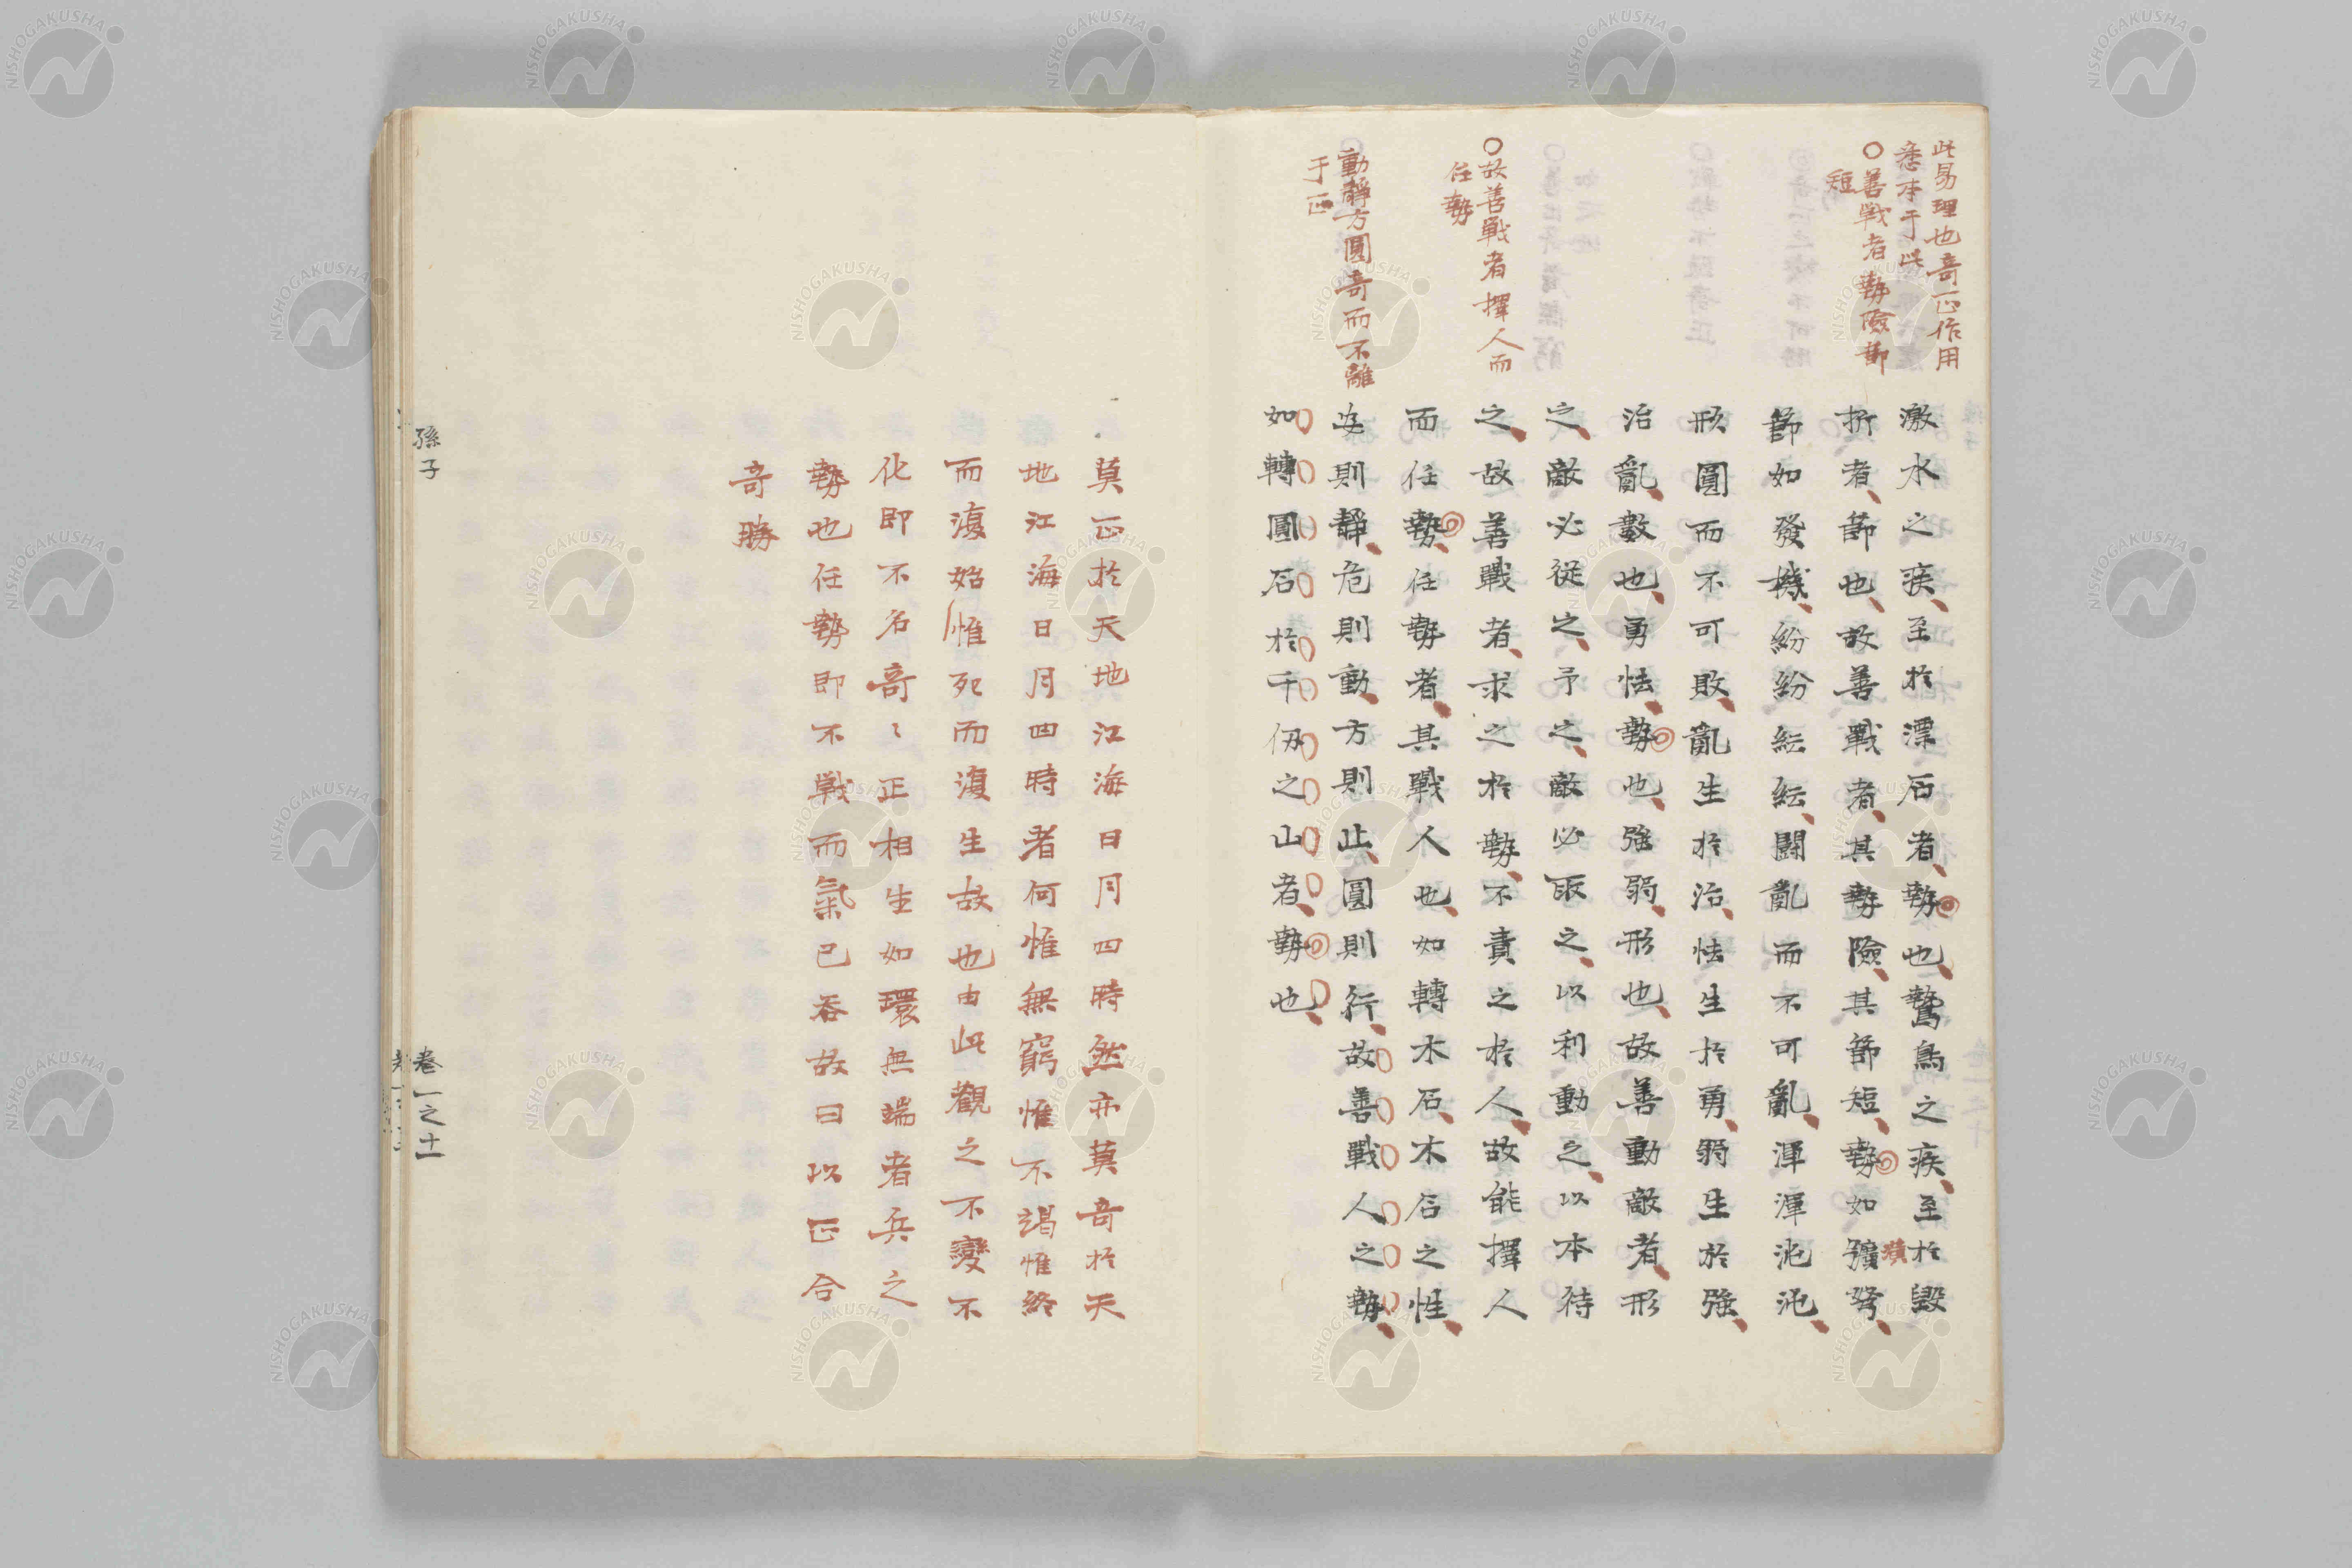 此易理也奇正作用
悉本于此
○善戰者勢險節
短
○故善戰者擇人而
任勢
動靜方圓奇而不離
于正
激水之疾至於漂石者勢也鷙鳥之疾至於毀
折者節也故善戰者其勢險其節短勢如彍弩
彍
節如發機紛紛紜紜鬪亂而不可亂渾渾沌沌
形圓而不可敗亂生於治怯生於勇弱生於強
治亂數也勇怯勢也強弱形也故善動敵者形
之敵必從之予之敵必取之以利動之以本待
之故善戰者求之於勢不責之於人故能擇人
而任勢任勢者其戰人也如轉木石木石之性
安則靜危則動方則止圓則行故善戰人之勢
如轉圓石於千仞之山者勢也
莫正於天地江海日月四時然亦莫奇於天
地江海日月四時者何惟無窮惟不竭惟終
而復始惟死而復生故也由此觀之不變不
化即不名奇〻正相生如環無端者兵之
勢也任勢即不戰而氣已吞故曰以正合
奇勝
孫子
卷一之十一
NISHOGAKUSHA